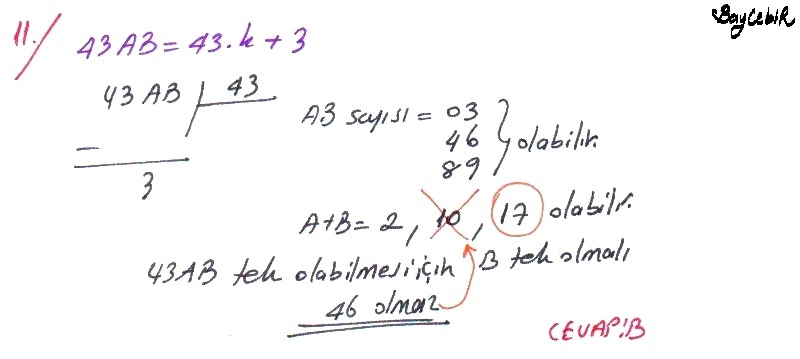 BayCebiR
11.) 43AB = 43.k + 3
43 AB | 43
AB sayısı = 03
46
89
olabilir.
−
3
A+B = 2, 10, 17 olabilir.
43AB tek olabilmesi için B tek olmalı
46 olmaz
CEVAP:B